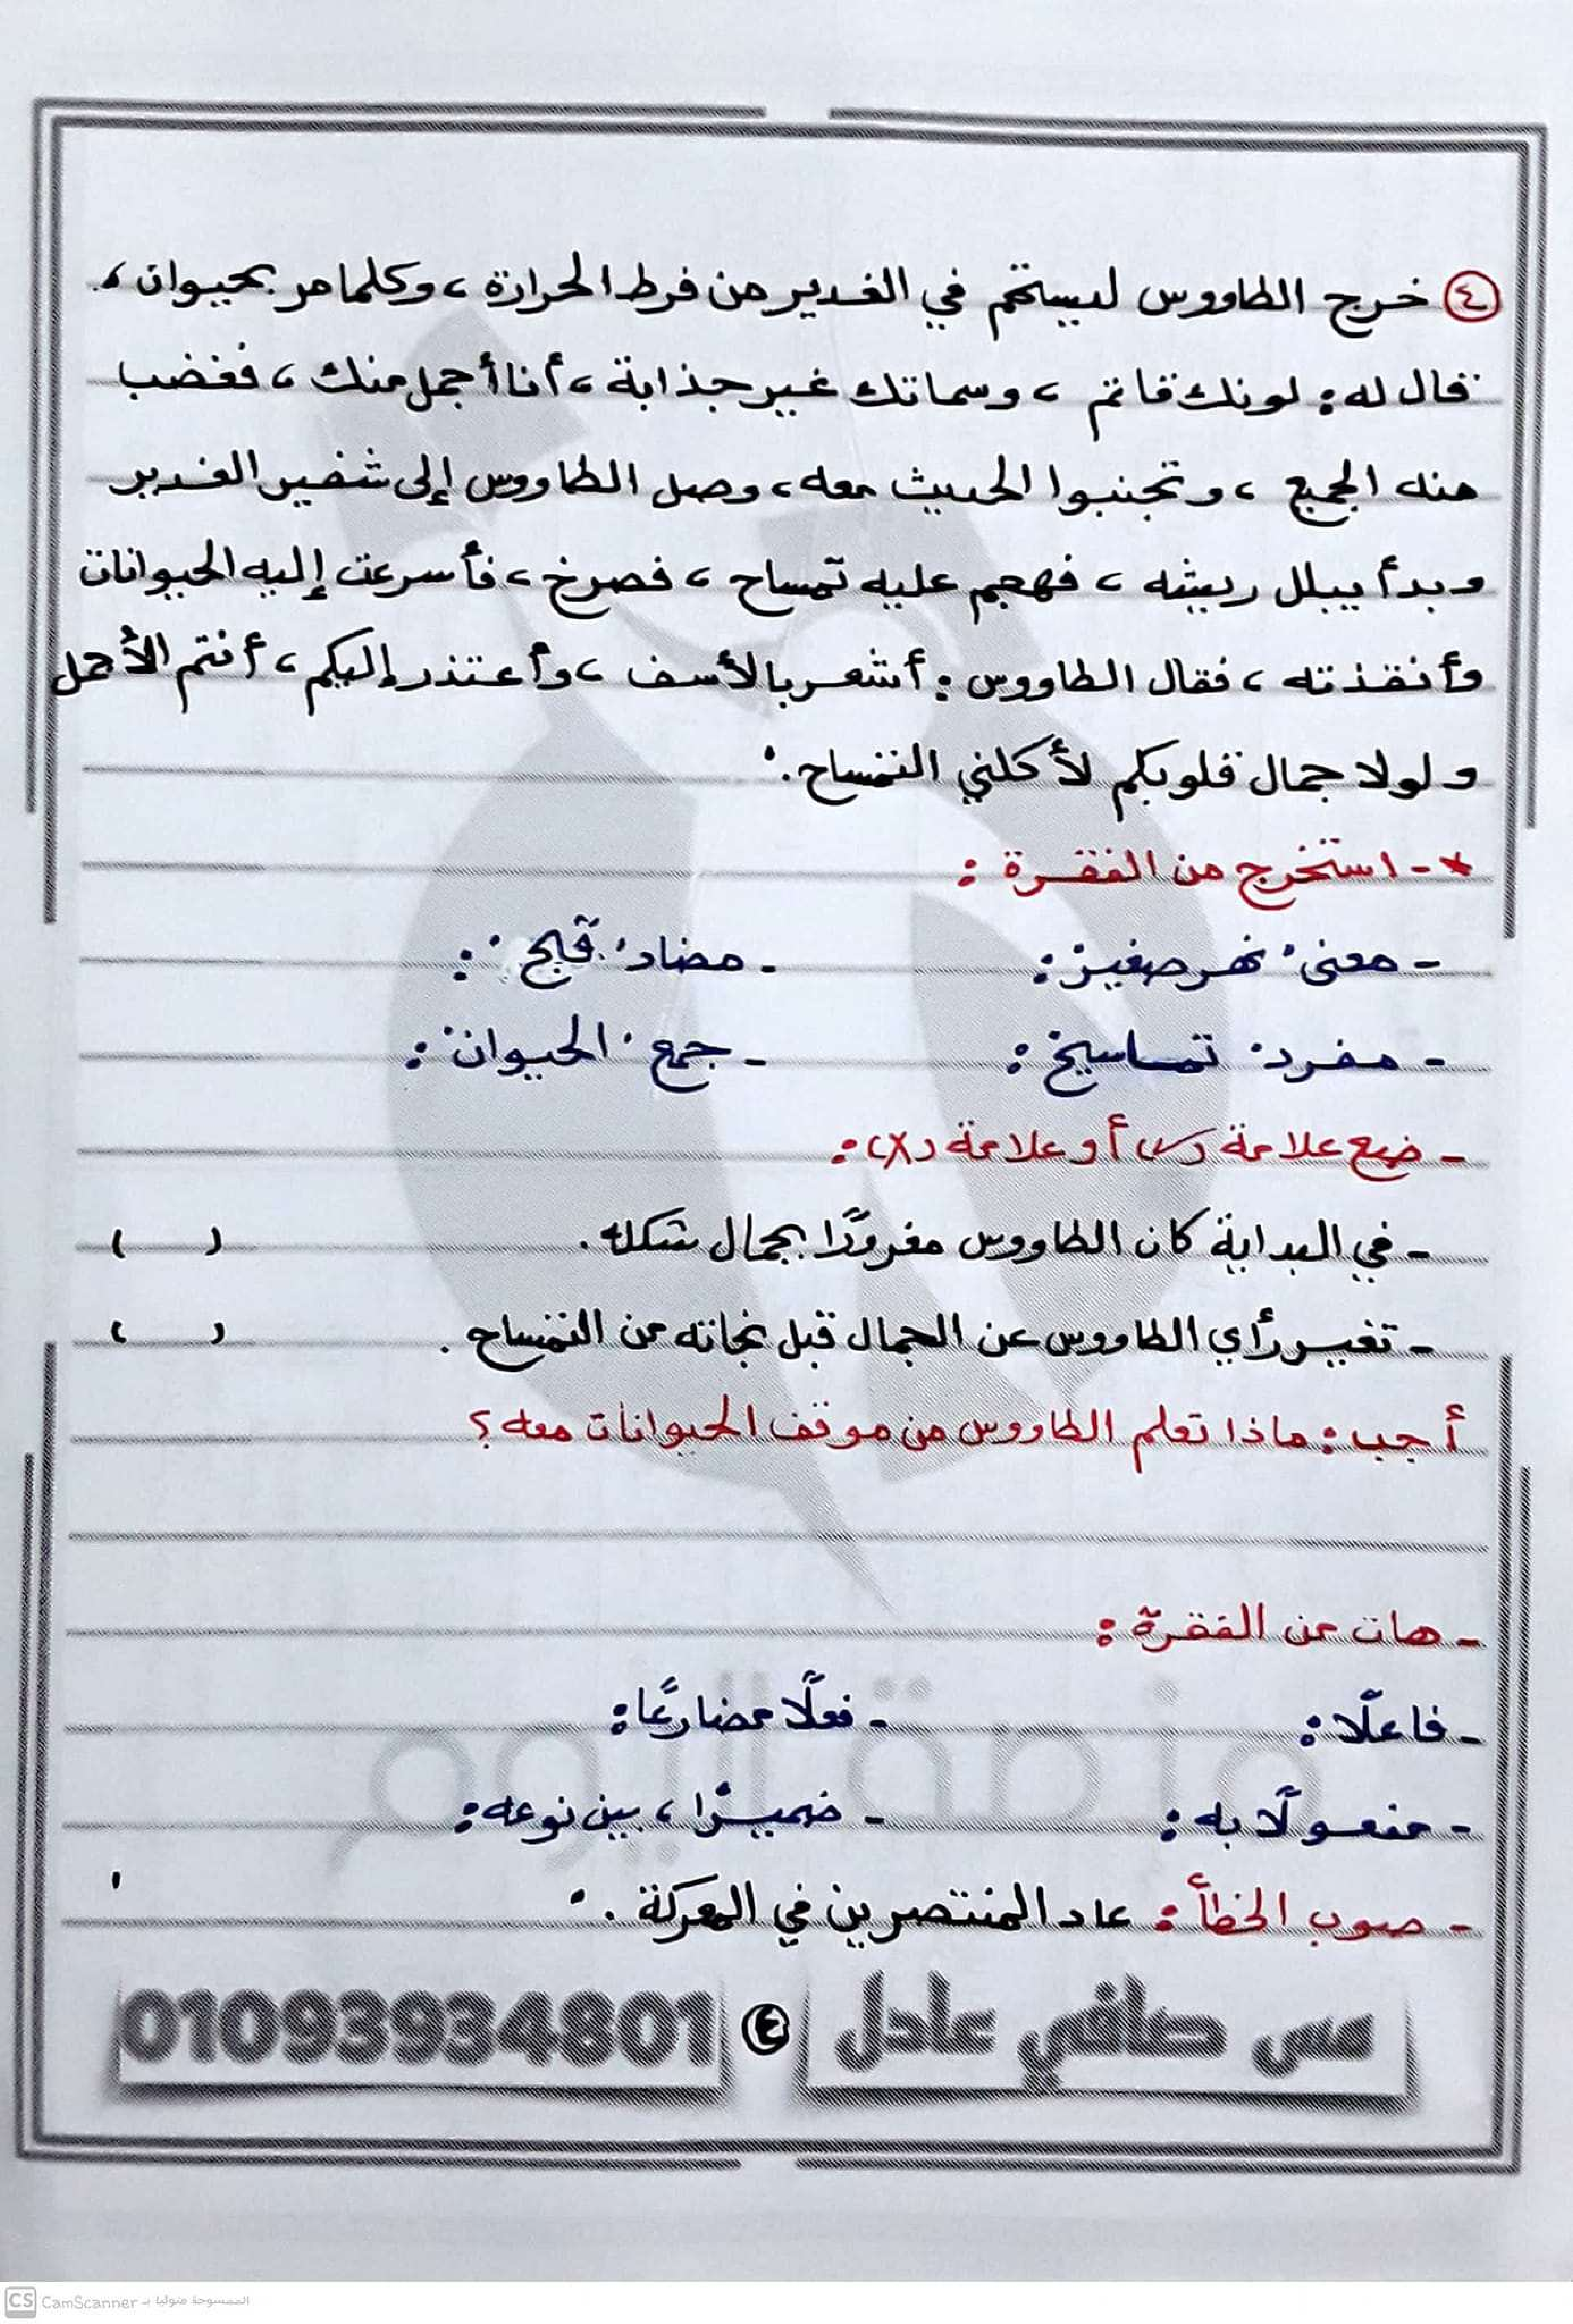 ٤ خرج الطاووس ليستحم في الغدير من فرط الحرارة، وكلما مر بحيوان،
قال له: لونك قاتم، وسماتك غير جذابة، أنا أجمل منك، فغضب
منه الجميع، وتجنبوا الحديث معه، وصل الطاووس إلى شفير الغدير
وبدأ يبلل ريشه، فهجم عليه تمساح، فصرخ، فأسرعت إليه الحيوانات
وأنقذته، فقال الطاووس: أشعر بالأسف، وأعتذر إليكم، أنتم الأجمل
ولولا جمال قلوبكم لأكلني التمساح."
*- استخرج من الفقرة:
- معنى "نهر صغير": - مضاد "قبيح":
- مفرد "تماسيح": - جمع "الحيوان":
- ضع علامة (✓) أو علامة (X):
- في البداية كان الطاووس مغرورًا بجمال شكله. ( )
- تغير رأي الطاووس عن الجمال قبل نجاته من التمساح. ( )
أجب: ماذا تعلم الطاووس من موقف الحيوانات معه؟
- هات من الفقرة:
- فاعلًا: - فعلًا مضارعًا:
- مفعولًا به: - ضميرًا، بين نوعه:
- صوب الخطأ: عاد المنتصرين في المعركة."
مس صافي عادل ٤ 01093934801
منصة اليوم
CS CamScanner الممسوحة ضوئيا بـ